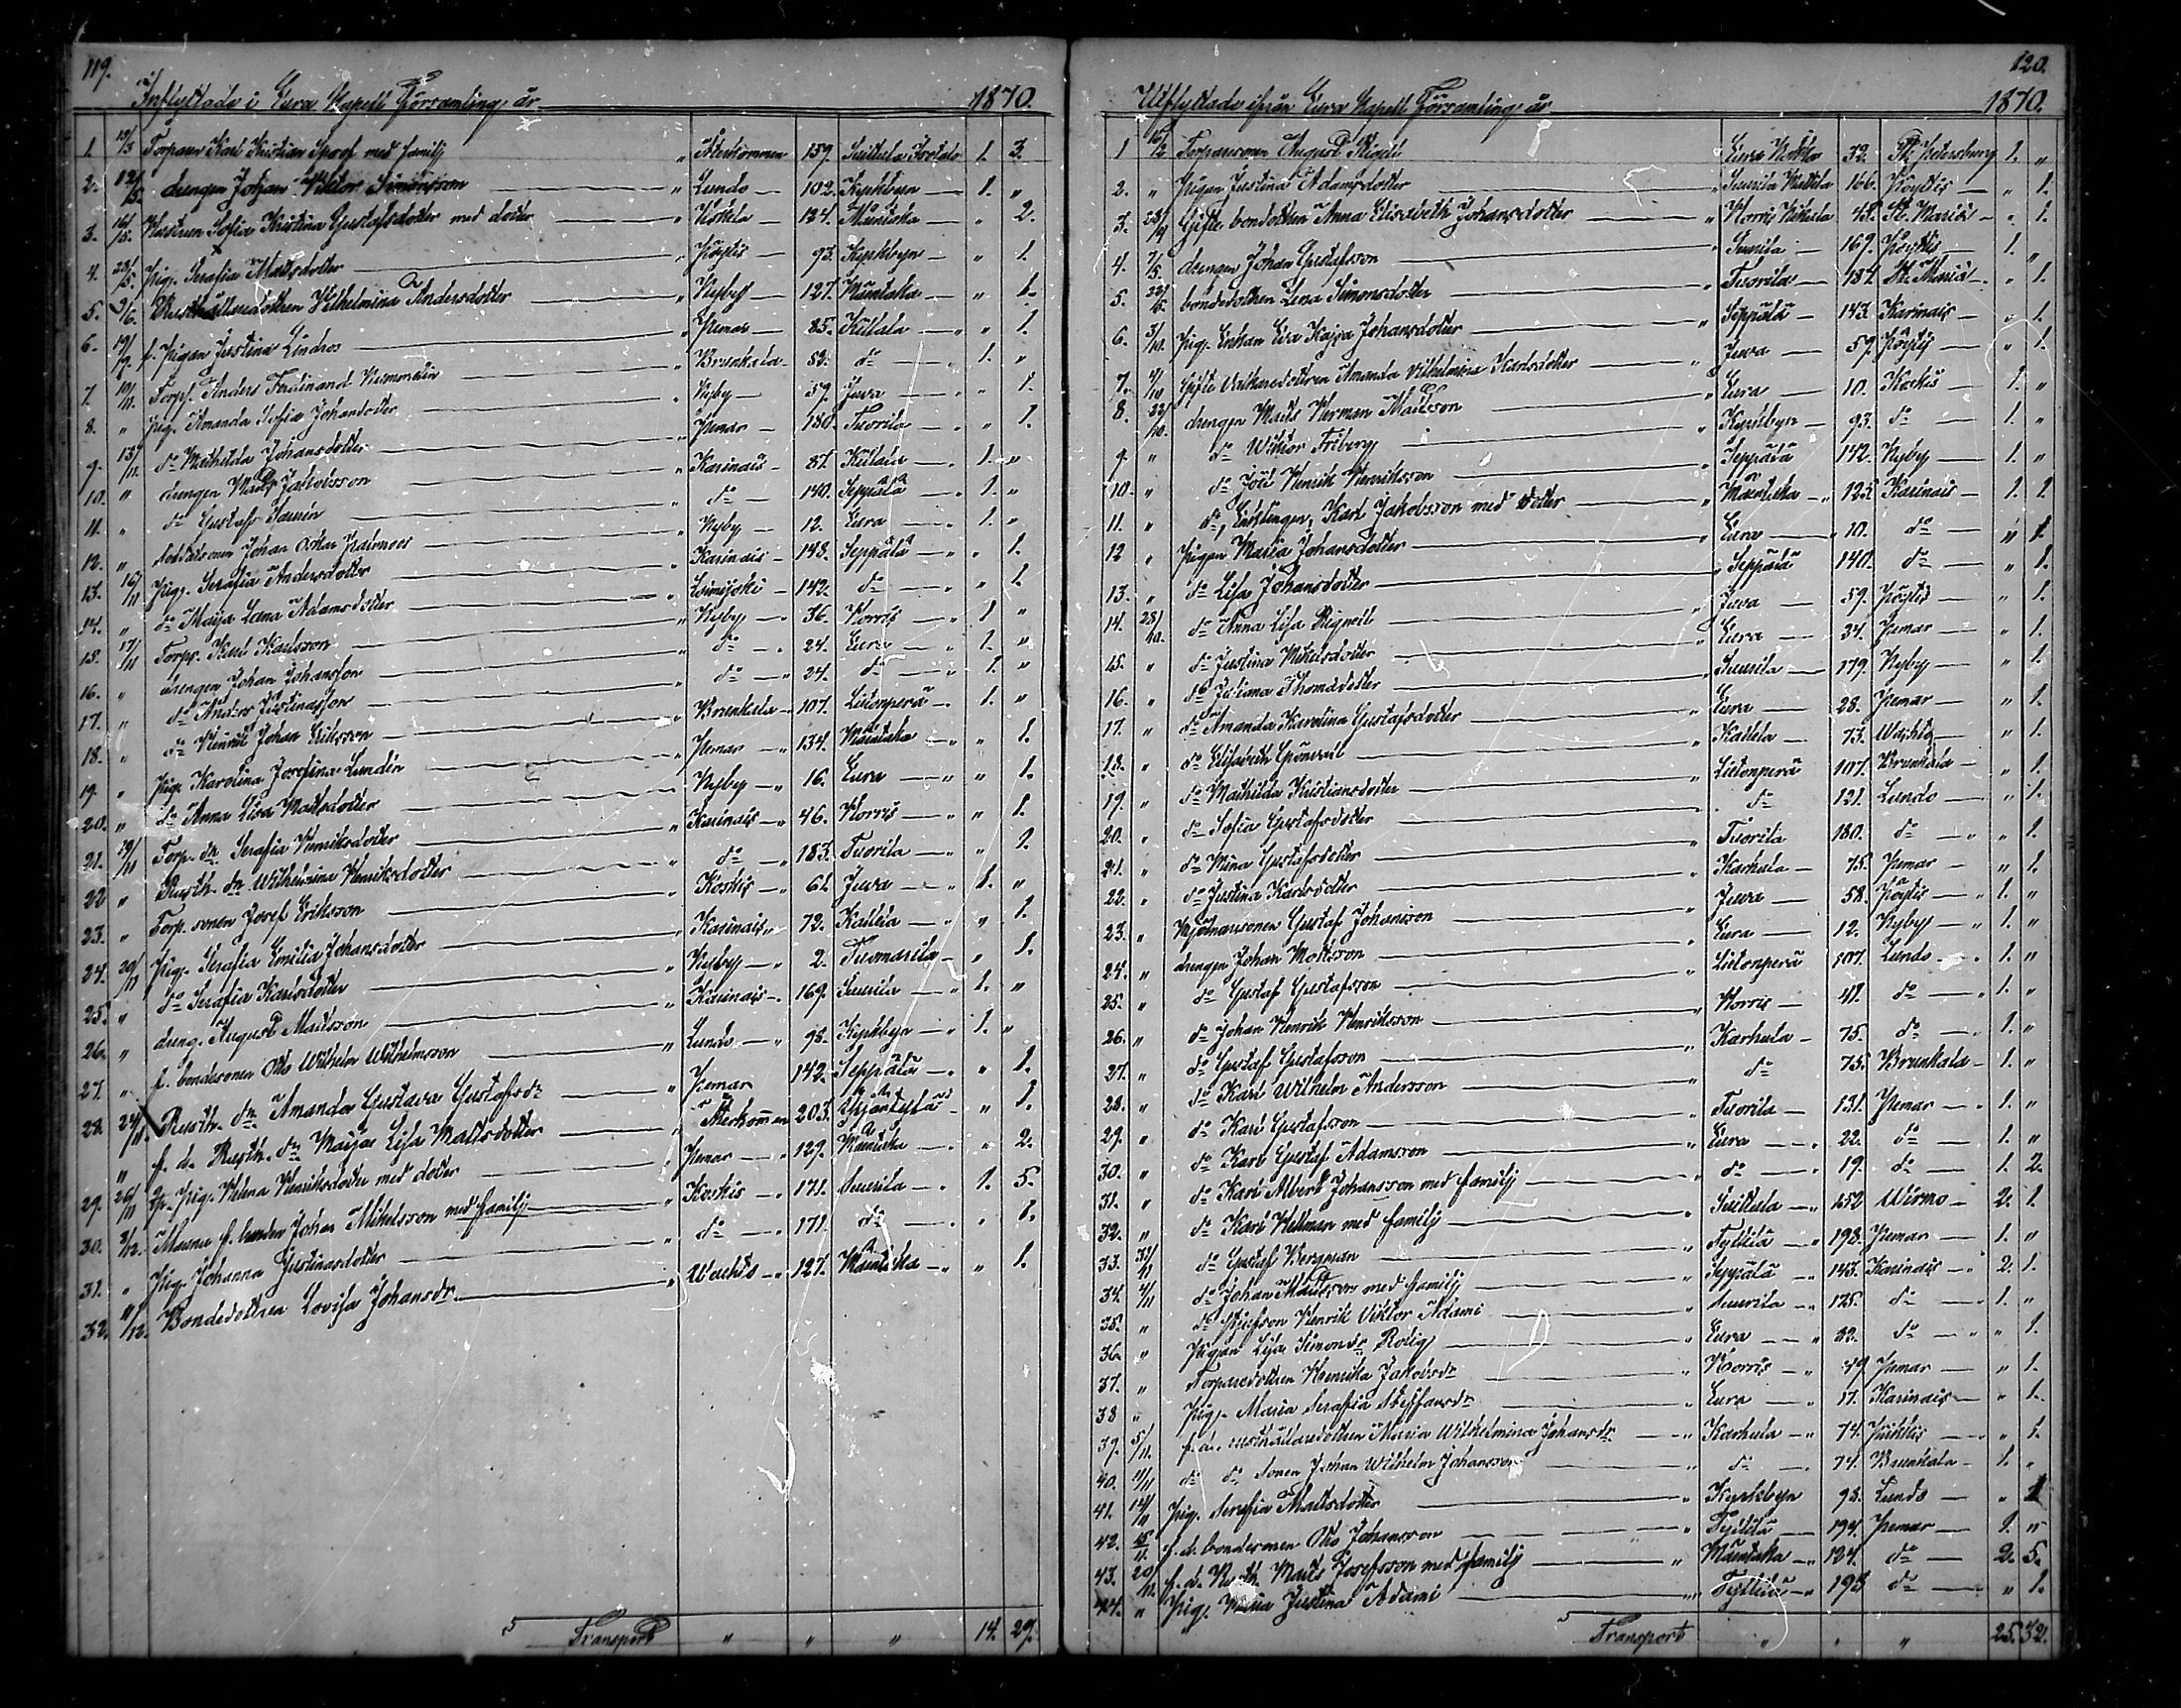 119.
Inflyttade i Eura Kapell Församling, år 1870.
1. 13/3 Torparen Karl Kristian Spoof med familj " Återkommen 159. Suittula Isotalo 1. 3.
2. 12/5. drengen Johan Viktor Simonsson " Lundo 102. Kyrkbyn 1. "
3. 16/5. Enkan Sofia Kristina Gustafsdotter med dotter " 124. Mäntska " 2.
4. 23/5. Pig. Serafia Mattsdotter " Pöytis 93. Kyrkbyn " 1.
5. 9/6. Rusthållaredottren Vilhelmina Andersdotter " Nyby 127. Mäntska " 1.
6. 19/9. f. Pigan Justina Lindros " Pemar 85. Kiilala " 1.
7. 10/11. Torp. Anders Ferdinand " Brunkala 82. do 1. "
8. " Pig. Amanda Sofia Johansdotter " Nyby 57. Juva " 1.
9. 13/11. do Mathilda Johansdotter " Pemar 180. Tuorila " 1.
10. " drengen Matts Jakobsson " Karinais 87. Kiilala 1. "
11. " do Gustaf " do 140. Seppälä 1. "
12. " Johan Oskar " Nyby 12. Eura 1. "
13. 16/11 Pig. Serafia Andersdotter " Karinais 148. Seppälä " 1.
14. " do Maija Leena Adamsdotter " Loimijoki 142. do " 1.
15. 17/11 Torp. Karl Karlsson " Nyby 36. Korris 1 "
16. " drengen Johan Johansson " do 24. Eura 1. "
17. " do Anders Justinasson " do 24. do 1. "
18. " do Henrik Johan Eriksson " Brunkala 107. Lietonperä 1. "
19. " Pig. Karolina Josefina Lundén " Pemar 134. Mäntska " 1.
20. " do Anna Lisa Mattsdotter " Nyby 16. Eura " 1.
21. 19/11 Torp. dr. Serafia Henriksdotter " Karinais 46. Korris " 1.
22 " Rusth. dr. Wilhelmina Henriksdotter " do 183. Tuorila " 1.
23. " Torp. sonen Josef Eriksson " Koskis 61. Juva 1. "
24. 20/11 Pig. Serafia Emilia Johansdotter " Karinais 72. Kallela " 1.
25. " do Serafia Karlsdotter " Nyby 2. Tuomarila " 1.
26. " dreng. August Mattsson " Karinais 169. Suurila 1. "
27. " f. bondesonen Otto Wilhelm Wilhelmsson " Lundo 98. Kyrkbyn 1. "
28. 24/11. Rusth. dr. Amanda Gustava Gustafsdr " Pemar 142. Seppälä " 1.
" f. d. Rusth. dr. Maija Lisa Mattsdotter " Återkommen 203. " 1.
29. 26/11 Pig. Helena Henriksdotter med dotter " Pemar 129. Mäntska " 2.
30. 3/12. f. bonden Johan Mikelsson med familj " Koskis 171. Suurila 1. 5.
31. " Pig. Johanna Justinasdotter " do 171. do " 1.
32. 11/12. Bondedottren Lovisa Johansdr. " Wachto 127. Mäntska " 1.
Transport " " " 14. 29.
120.
Utflyttade ifrån Eura Kapell Församling, år 1870.
1 16/2 Torparesonen August Rigell Eura 32. St. Petersburg 1. "
2. " Pigan Justina Adamsdotter " Suurila Mattila 166. Pöytis " 1.
3. 23/4 Gifte bondottren Anna Elisabeth Johansdotter " Korris Nikula 48. St. Marie " 1.
4. 7/5. drengen Johan Gustafsson " Suurila 169. Pöytis 1. "
5. 22/5 bondedottren Lena Simonsdotter " Tuorila 184. St. Marie " 1.
6. 3/10. Pig. Enkan Eva Kajsa Johansdotter " Seppälä 143. Karinais " 1.
7. 4/10 Gifte Amanda Vilhelmina Karlsdotter " Juva 59. Pöytis " 1.
8. 22/10. drengen Matts Herman Mattsson " Eura 10. Koskis 1. "
9. " do Wiktor Friberg " Kyrkbyn 93. do 1. "
10. " do Joel Henrik Henriksson " Seppälä 142. Nyby 1. "
11. " do Enklingen, Karl Jakobsson med dotter " Mäntska 125. Karinais 1. 1.
12 " Pigan Maria Johansdotter " Eura 10. do " 1.
13. " do Lisa Johansdotter " Seppälä 140. do " 1.
14. 28/10. do Anna Lisa " Juva 59. Pöytis " 1.
15. " do Justina Mikelsdotter " Eura 34. Pemar " 1.
16. " do Juliana Thomasdotter " Suurila 179. Nyby " 1.
17. " do Amanda Karolina Gustafsdotter " Eura 28. Pemar " 1.
18. " do Elisabeth Grönvall " Kallela 73. Wachto " 1.
19. " do Mathilda Kristiansdotter " Lietonperä 107. Brunkala " 1.
20. " do Sofia Gustafsdotter " do 121. Lundo " 1.
21. " do Mina Gustafsdotter " Tuorila 180. do " 1.
22. " do Justina Karlsdotter " Karhula 75. Pemar " 1.
23. " Gustaf Johansson " Juva 58. Pöytis 1. "
24. " drengen Johan Mattsson " Eura 12. Nyby 1. "
25. " do Gustaf Gustafsson " Lietonperä 107. Lundo 1. "
26. " do Johan Henrik Henriksson " Korris 41. do 1. "
27. " do Gustaf Gustafsson " Karhula 75. do 1. "
28. " do Karl Wilhelm Andersson " do 75. Brunkala 1. "
29. " do Karl Gustafsson " Tuorila 181. Pemar 1. "
30. " do Karl Gustaf Adamsson " Eura 22. do 1. "
31. " do Karl Albert Johansson med familj " do 19. do 1. 2.
32. " do Karl Hellman med familj " Suittula 152 Wirmo 2. 1.
33. 31/ do Gustaf Bergman " Tyllilä 198. Pemar 1. "
34. 1/11 do Johan Mattsson med familj " Seppälä 143. Karinais 2. 1.
35. " do Styfson Henrik Viktor Adami " Suurila 175. do 1. "
36 " Pigan Lisa Simonsdr Rolig " Eura 32. do " 1.
37. " Torparedottren Henrika Jakobsdr " Korris 49 Pemar " 1.
38 " Pig. Maria Serafia Steffansdr " Eura 17. Karinais " 1.
39. 5/11. f. d. rusthållaredottren Maria Wilhelmina Johansdr. " Karhula 74. Pöytis " 1.
40. 11/11 do do sonen Johan Wilhelm Johansson " do 74. Brunkala 1. "
41. 14/11 Pig. Serafia Mattsdotter " Kyrkbyn 98. Lundo " 1
42. 15/11. f. d. bondesonen Otto Johansson " Tyllilä 194. Pemar 1. "
43. 20/11. f. d. Rusth. Matts Josefsson med familj " Mäntska 124. do 2. 5.
44. " Pig. Maria Justina Adami " Tyllilä 198 do " 1.
Transport " " " 25. 32.